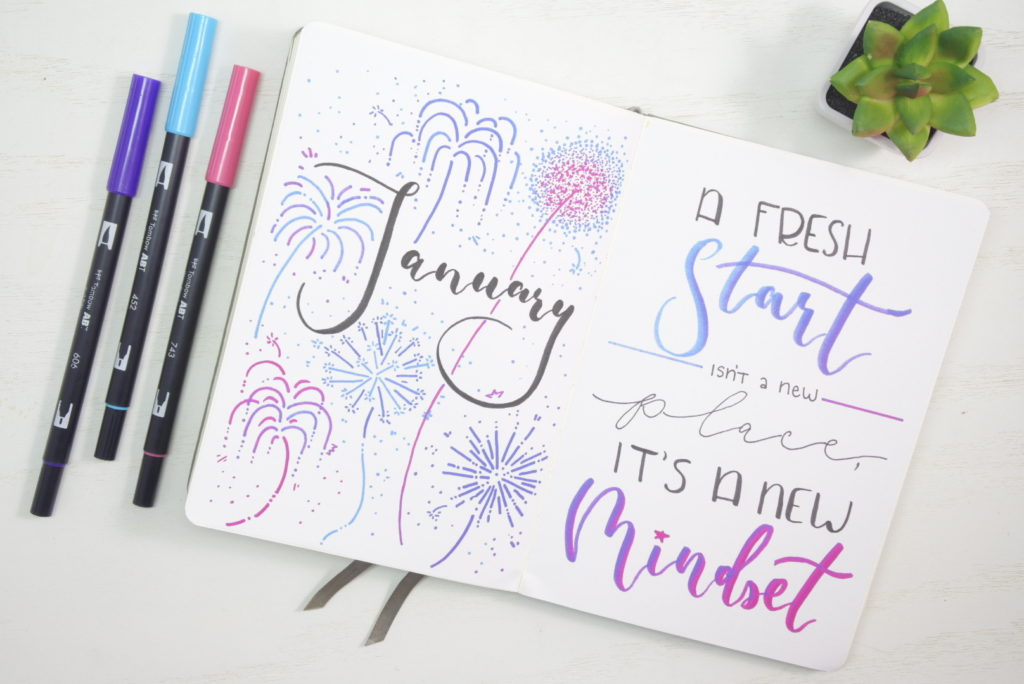 Tombow ABT
606
Tombow ABT
452
Tombow ABT
743
January
A FRESH
Start
isn't a new
place,
IT'S A NEW
Mindset